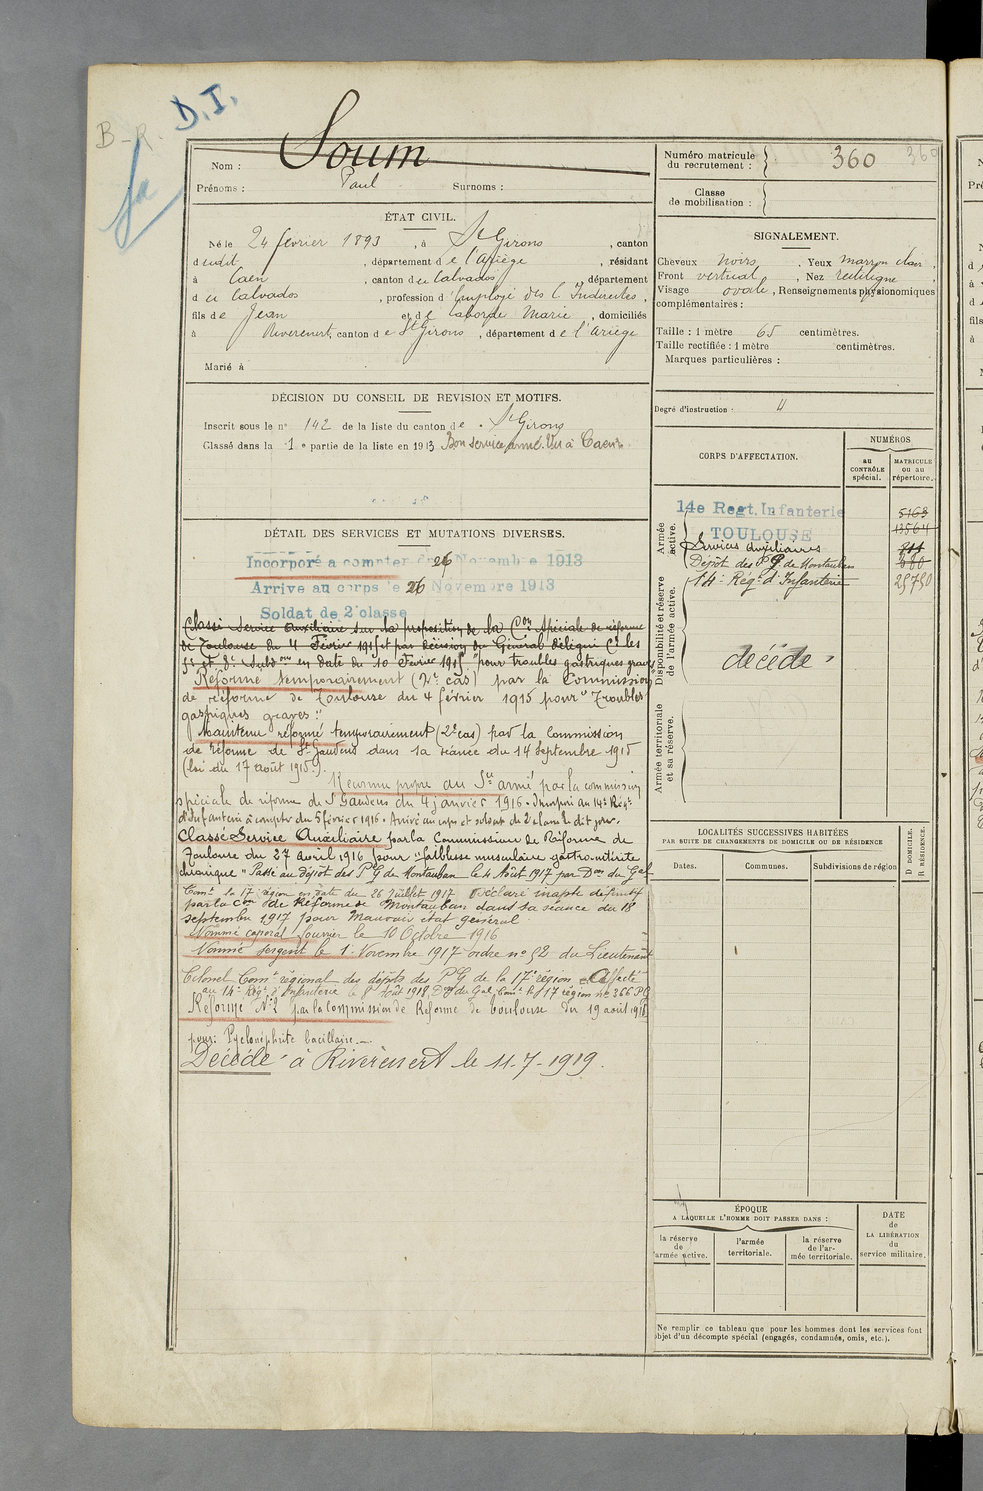 B-R.
D.I.
Nom : Soum
Prénoms : Paul Surnoms :
ÉTAT CIVIL.
Né le 24 février 1893, à St Girons, canton
dudit, département de l'Ariège, résidant
à Caen, canton du Calvados, département
du Calvados, profession d'Employé des C. Indirectes,
fils de Jean et de Laborde Marie, domiciliés
à Rivererent, canton de St Girons, département de l'Ariège
Marié à
DÉCISION DU CONSEIL DE REVISION ET MOTIFS.
Inscrit sous le n° 142 de la liste du canton de St Girons
Classé dans la 1e partie de la liste en 1913 Bon service armé. Vu à Caen.
DÉTAIL DES SERVICES ET MUTATIONS DIVERSES.
Incorporé à compter du 26 Novembre 1913
Arrivé au corps le 26 Novembre 1913
Soldat de 2e classe
Classé Service Auxiliaire sur la proposition de la Con Spéciale de réforme
de Toulouse du 4 Février 1915 et par décision du Général délégué Ct les
et Subdons en date du 10 Février 1915 "pour troubles gastriques graves"
Réformé temporairement (2e cas) par la Commission
de réforme de Toulouse du 4 février 1915 pour "Troubles
gastriques graves."
Maintenu réformé temporairement (2e cas) par la Commission
de réforme de St Gaudens dans sa séance du 14 septembre 1915
(loi du 17 août 1915.)
Reconnu propre au Sce armé par la commission
spéciale de réforme de St Gaudens du 4 janvier 1916. au 14e Régt
d'Infanterie à compter du 5 février 1916. Arrivé au corps et soldat de 2e classe le dit jour.
Classé Service Auxiliaire par la Commission de Réforme de
Toulouse du 27 avril 1916 pour "faiblesse musculaire gastro-entérite
chronique" Passé au dépôt des P G de Montauban le 4 Août 1917 par Don du Gal
Comt la 17e région en date du 26 Juillet 1917 Déclaré inapte définitif
par la Con de Réforme de Montauban dans sa séance du 18
septembre 1917 pour Mauvais état général
Nommé caporal fourrier le 10 Octobre 1916
Nommé Sergent le 1er Novembre 1917 ordre n° 52 du Lieutenant
Colonel Comt régional des dépôts des P G de la 17e région Affecté
au 14e Régt d'Infanterie le 8 Août 1918 Don du Gal Comt la 17 région n° 366 PG
Réformé N° 2 par la Commission de Réforme de Toulouse du 19 août 1918
pour: Pyélonéphrite bacillaire.
Décédé à Riverenert le 11-7-1919.
Numéro matricule du recrutement : 360
360
Classe de mobilisation :
SIGNALEMENT.
Cheveux noirs, Yeux marron clair,
Front vertical, Nez rectiligne
Visage ovale, Renseignements physionomiques
complémentaires :
Taille : 1 mètre 65 centimètres.
Taille rectifiée : 1 mètre centimètres.
Marques particulières :
Degré d'instruction : 4
CORPS D'AFFECTATION.
NUMÉROS
au CONTRÔLE spécial.
MATRICULE ou au répertoire.
Armée active.
14e Regt. Infanterie
TOULOUSE
Services Auxiliaires
Dépôt des P.G. de Montauban
14e Régt d'Infanterie
5163
13564
25750
Disponibilité et réserve de l'armée active.
décédé
Armée territoriale et sa réserve.
LOCALITÉS SUCCESSIVES HABITÉES
PAR SUITE DE CHANGEMENTS DE DOMICILE OU DE RÉSIDENCE
Dates.
Communes.
Subdivisions de région
D DOMICILE.
R RÉSIDENCE.
ÉPOQUE
A LAQUELLE L'HOMME DOIT PASSER DANS :
la réserve de l'armée active.
l'armée territoriale.
la réserve de l'armée territoriale.
DATE de LA LIBÉRATION du service militaire.
Ne remplir ce tableau que pour les hommes dont les services font
objet d'un décompte spécial (engagés, condamnés, omis, etc.).